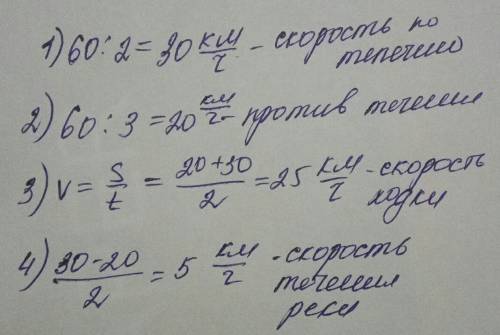 1) 60 : 2 = 30 км/г - скорость по
тепечию
2) 60 : 3 = 20 км/г - против течения
3) v = S/t = (20+30)/2 = 25 км/г - скорость
лодки
4) (30-20)/2 = 5 км/г - скорость
течения
реки